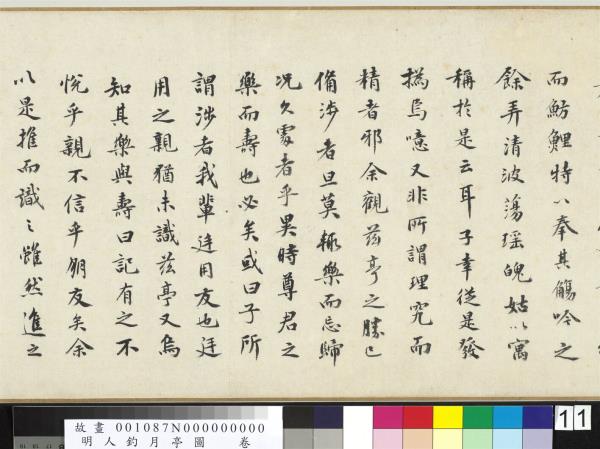 而魴鯉特以奉其觴吟之
餘弄清波蕩瑤魄姑以寓
稱於是云耳子幸從是發
撝焉噫又非所謂理究而
精者邪余觀茲亭之勝已
備涉者旦莫輒樂而忘歸
况久處者乎異時尊君之
樂而壽也必矣或曰子所
謂涉者我輩廷用友也廷
用之親猶未識茲亭又烏
知其樂與壽曰記有之不
悅乎親不信乎朋友矣余
以是推而識之雖然進之
故畫 001087N000000000
明人釣月亭圖 卷
11